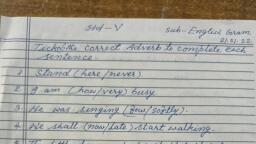 Std - V
Sub - English Gram.
21.01.22
Tick the correct Adverb to complete each
sentence.
1 Stand (here/never).
2 I am (how/very) busy.
3 He was singing (few/softly).
4 We shall (now/late) start walking.
5